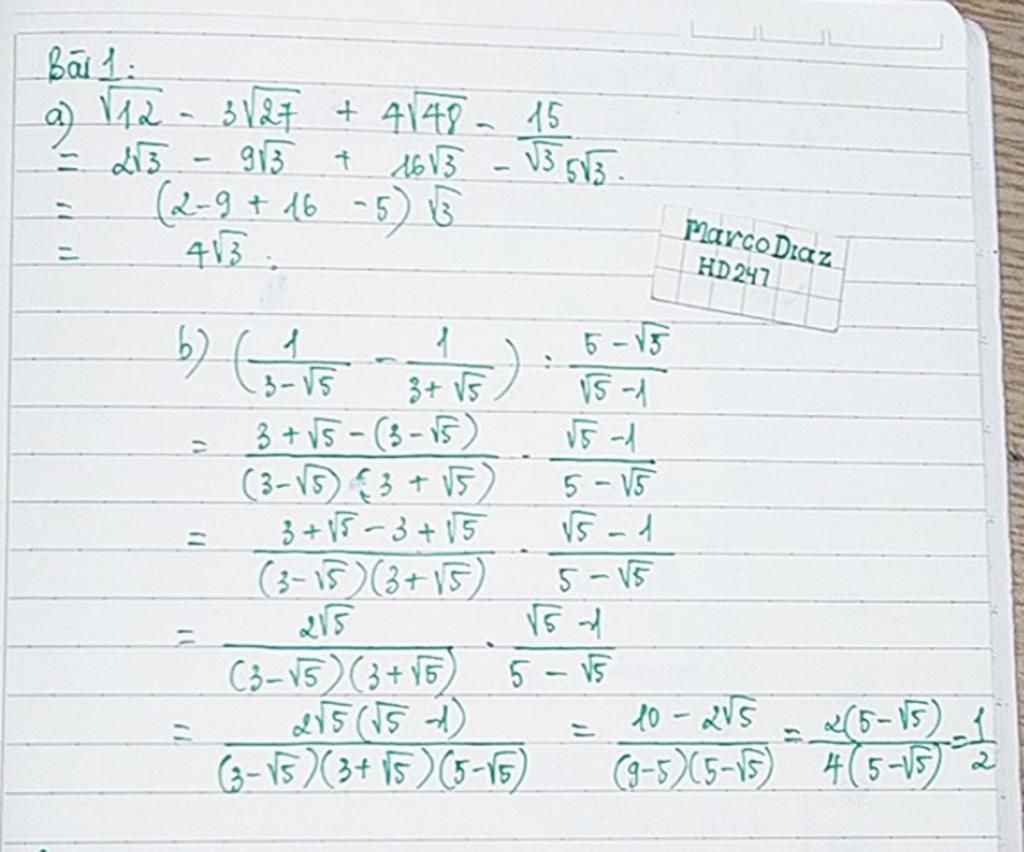 Bài 1:
a) √12 - 3√27 + 4√48 - 15/√3
= 2√3 - 9√3 + 16√3 - 5√3.
= (2-9+16-5)√3
= 4√3.
MarcoDiaz
HD247
b) (1/(3-√5) - 1/(3+√5)) : (5-√5)/(√5-1)
= (3+√5-(3-√5))/((3-√5)(3+√5)) · (√5-1)/(5-√5)
= (3+√5-3+√5)/((3-√5)(3+√5)) · (√5-1)/(5-√5)
= 2√5/((3-√5)(3+√5)) · (√5-1)/(5-√5)
= 2√5(√5-1)/((3-√5)(3+√5)(5-√5)) = (10-2√5)/((9-5)(5-√5)) = 2(5-√5)/(4(5-√5)) = 1/2